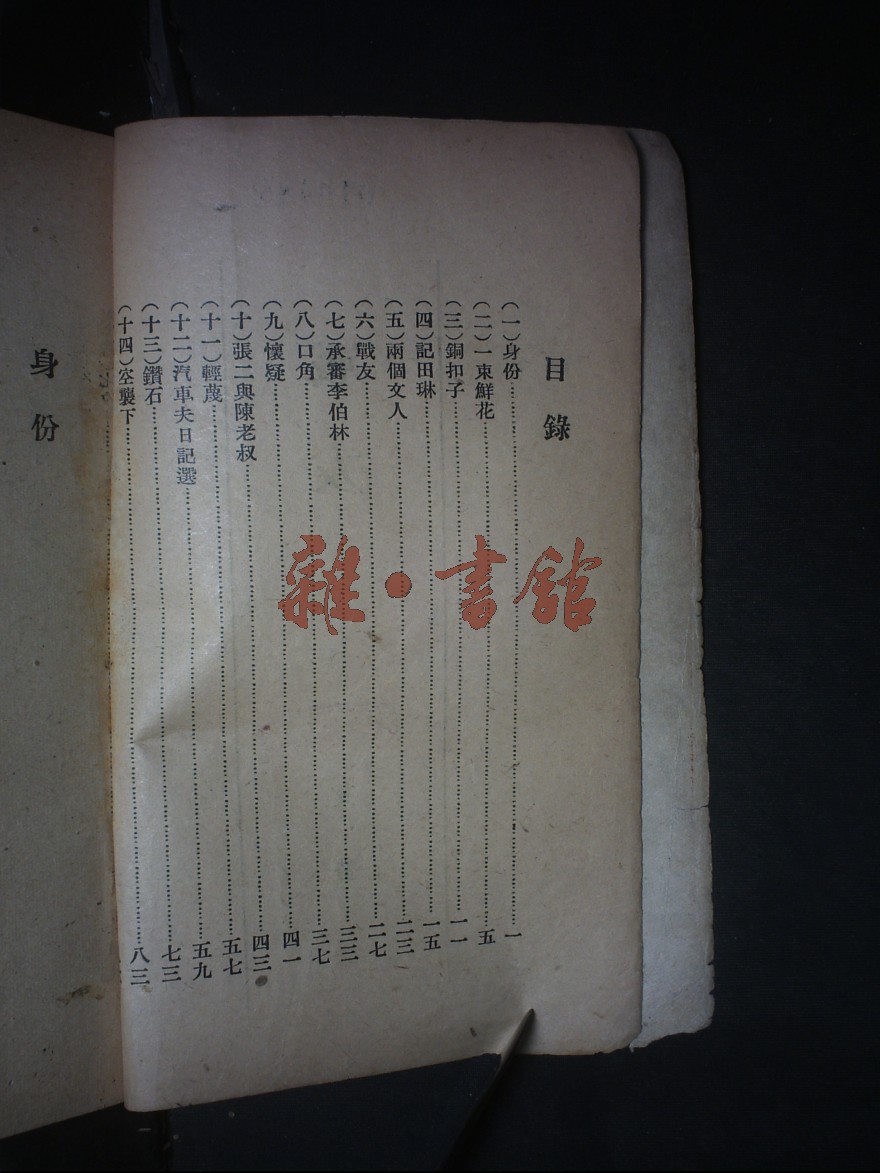 目錄
(一)身份……一
(二)一束鮮花……五
(三)銅扣子……一一
(四)記田琳……一五
(五)兩個文人……二三
(六)戰友……二七
(七)承審李伯林……三三
(八)口角……三七
(九)懷疑……四一
(十)張二與陳老叔……四三
(十一)輕蔑……五七
(十二)汽車夫日記選……五九
(十三)鑽石……七三
(十四)空襲下……八三
身份
雜·書館